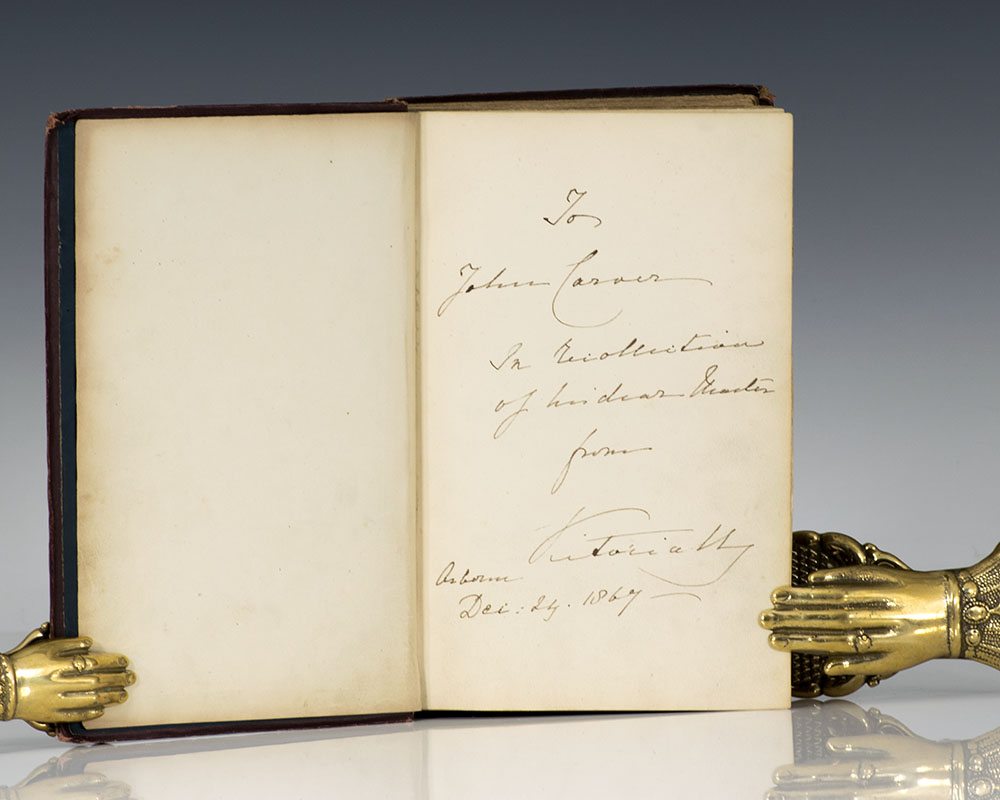 To
John Carver
In recollection
of his dear Master
from
Victoria R
Osborne
Dec: 24. 1867